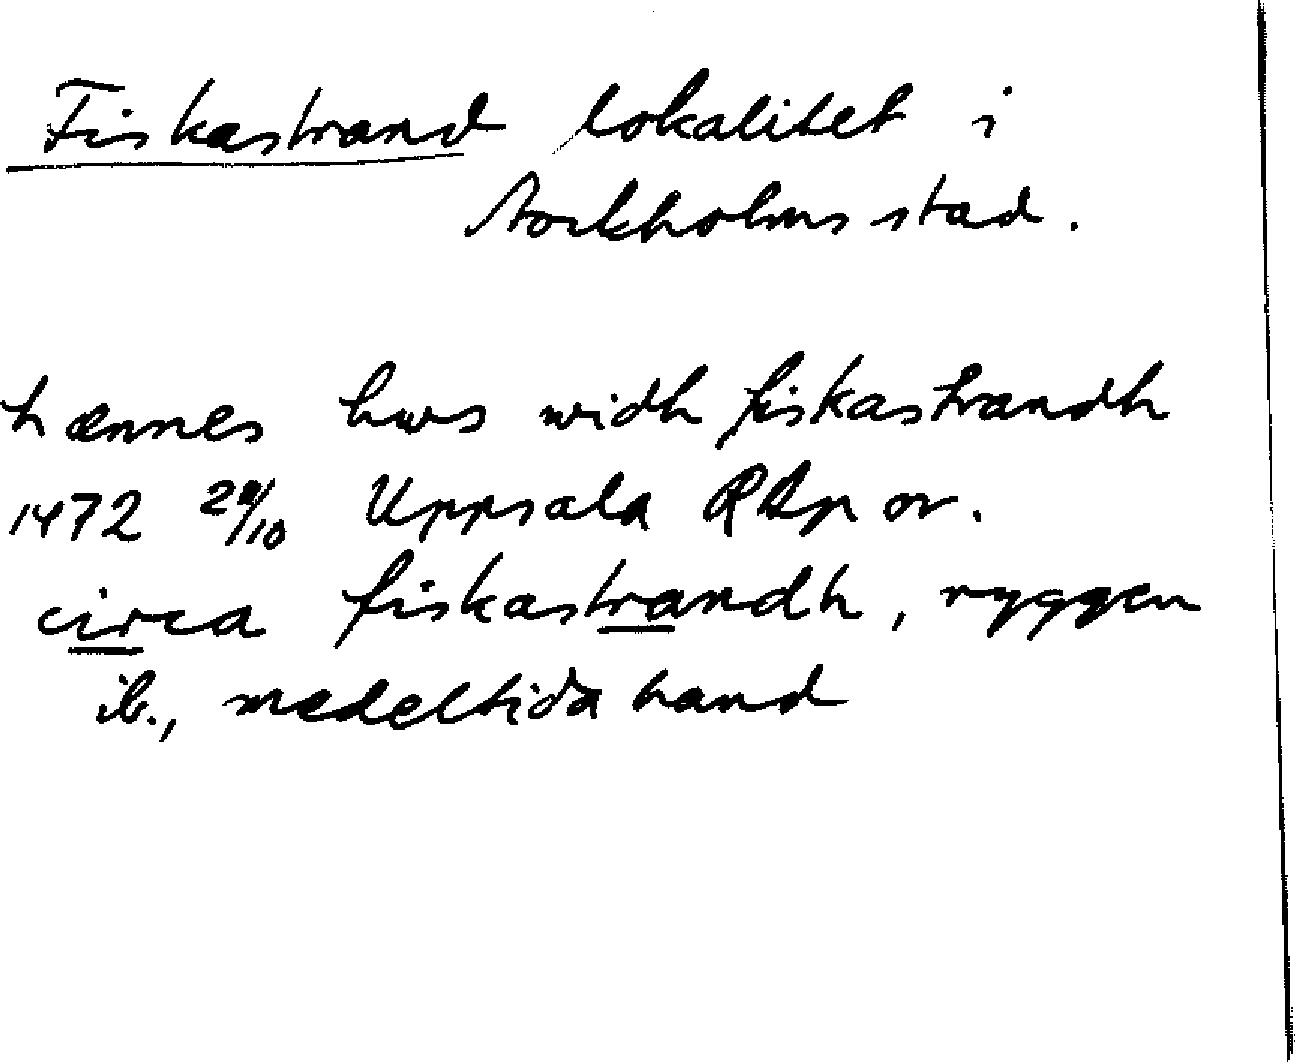 Fiskastrand lokalitet i
Stockholms stad.
hænnes hws widh fiskastrandh
1472 28/10 Uppsala RAp or.
circa fiskastrandh, ryggen
ib., medeltida hand